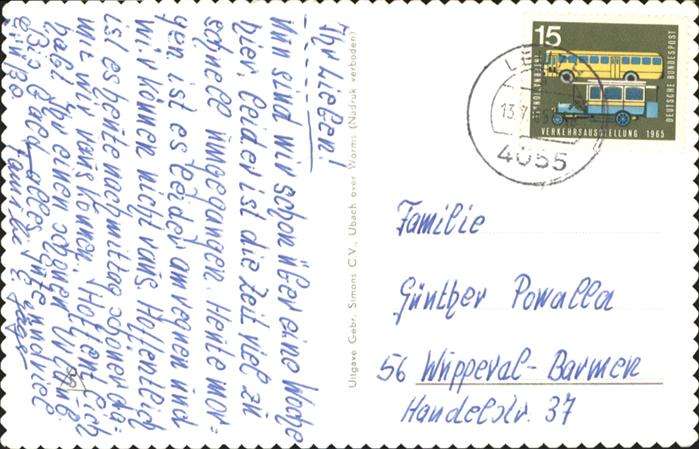 Ihr Lieben!
Nun sind wir schon über eine Woche
hier. Leider ist die Zeit viel zu
schnell umgegangen. Heute mor=
gen ist es leider am regnen und
wir können nicht raus. Hoffentlich
ist es heute nachmittag schöner da=
mit wir raus können. Hoffentlich
habt Ihr einen schönen Urlaub.
Bis dann alles Gute und viele
Grüße
Uitgave Gebr. Simons C.V., Ubach over Worms (Nadruk verboden)
15
DEUTSCHE BUNDESPOST
VERKEHRSAUSSTELLUNG 1965
13.7
4055
Familie
Günther Powalla
56 Wupperal-Barmen
Handelstr. 37